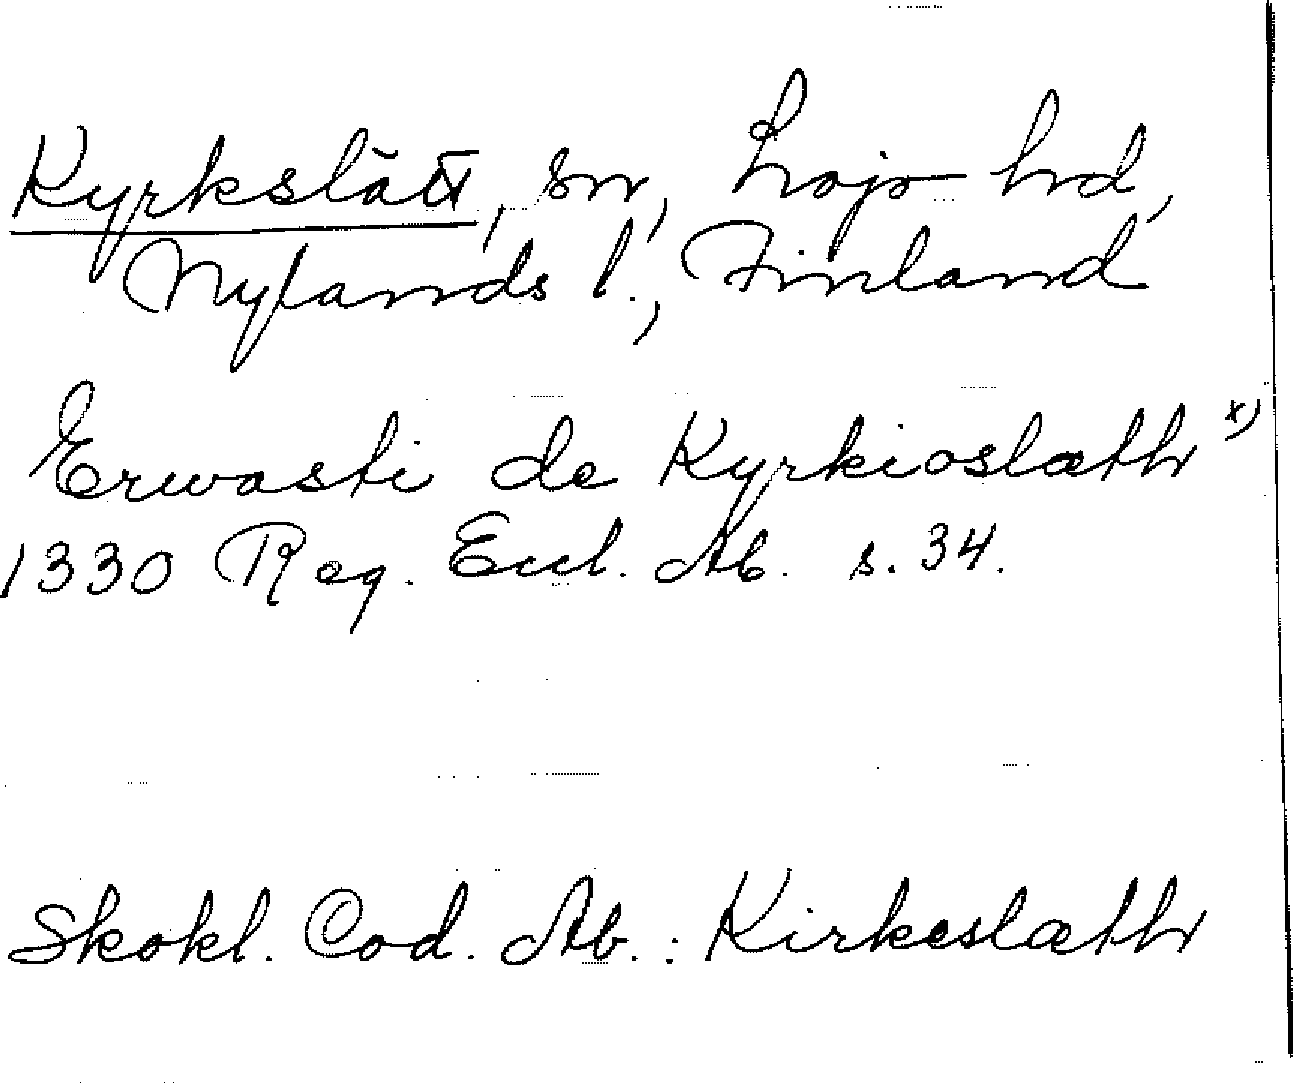 Kyrkslätt, sn, Lojo hd,
Nylands l., Finland
Erwasti de Kyrkioslæth x)
1330 Reg. Eccl. Ab. s. 34.
Skokl. Cod. Ab.: Kirkeslæth